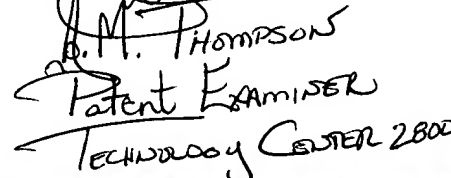 G.M. THOMPSON
Patent EXAMINER
TECHNOLOGY CENTER 2800